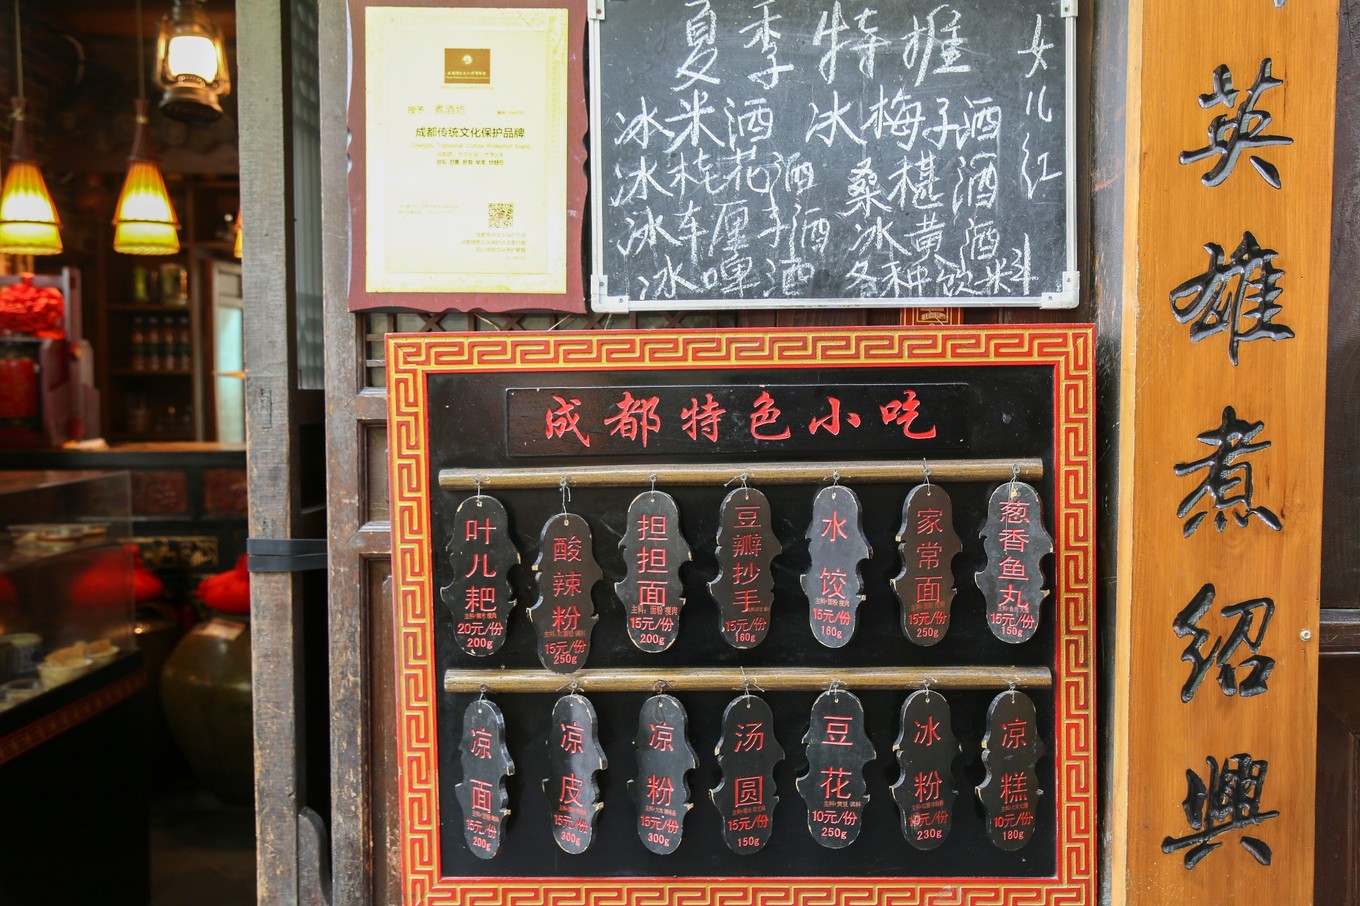 授予：煮酒坊
成都传统文化保护品牌
夏季特推
冰米酒 冰梅子酒
冰桂花酒 桑椹酒
冰车厘子酒 冰黄酒
冰啤酒 各种饮料
女儿红
成都特色小吃
叶儿耙
20元/份
200g
酸辣粉
15元/份
250g
担担面
主料：面粉 瘦肉
15元/份
200g
豆瓣抄手
15元/份
160g
水饺
15元/份
160g
家常面
15元/份
250g
葱香鱼丸
15元/份
150g
凉面
15元/份
200g
凉皮
15元/份
300g
凉粉
15元/份
300g
汤圆
15元/份
150g
豆花
10元/份
250g
冰粉
10元/份
230g
凉糕
10元/份
180g
英雄煮绍興